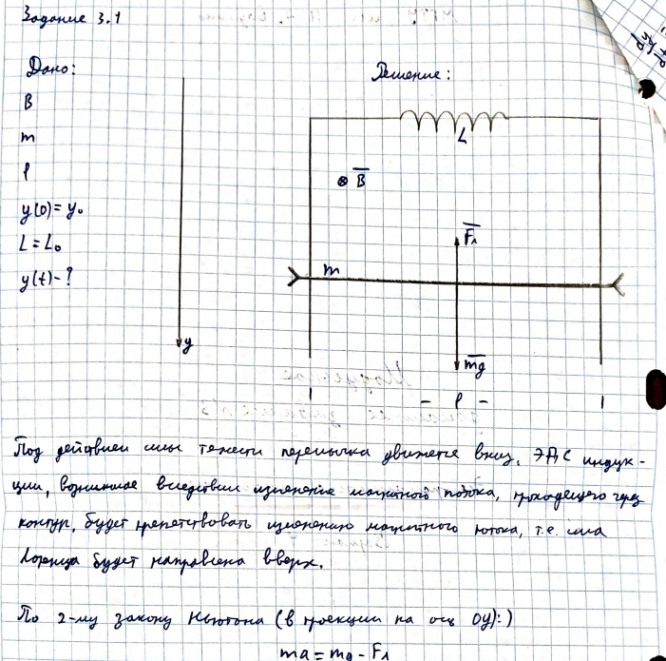 Задание 3.1
Дано:
Решение:
B
m
l
y(0)=y₀
L=L₀
y(t)-?
L
B̅
F̅л
m
m̅g̅
y
- l -
Под действием силы тяжести перемычка движется вниз. ЭДС индук-
ции, возникшая вследствии изменения магнитного потока, проходящего через
контур, будет препятствовать изменению магнитного потока, т.е. сила
Лоренца будет направлена вверх.
По 2-му закону Ньютона (в проекции на ось Oy):)
ma = mg - Fл